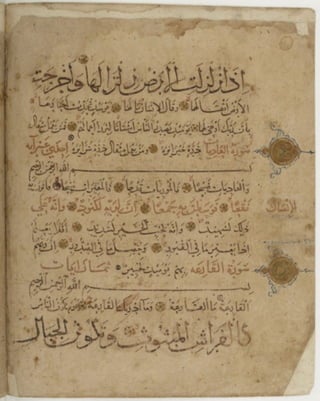 اذا زلزلت الارض زلزالها واخرجت
الارض اثقالها وقال الانسان مالها يومئذ تحدث اخبارها
بان ربك اوحى لها يومئذ يصدر الناس اشتاتا ليروا اعمالهم فمن يعمل مثقال
سورة العاديات ذرة خيرا يره ومن يعمل مثقال ذرة شرا يره احدى عشر اية
بسم الله الرحمن الرحيم
والعاديات ضبحا فالموريات قدحا فالمغيرات صبحا فاثرن به
نقعا فوسطن به جمعا ان الانسان لربه لكنود وانه على
ذلك لشهيد وانه لحب الخير لشديد افلا يعلم
اذا بعثر ما في القبور وحصل ما في الصدور ان ربهم
سورة القارعة بهم يومئذ لخبير ثمان ايات
بسم الله الرحمن الرحيم
القارعة ما القارعة وما ادراك ما القارعة يوم يكون الناس
كالفراش المبثوث وتكون الجبال